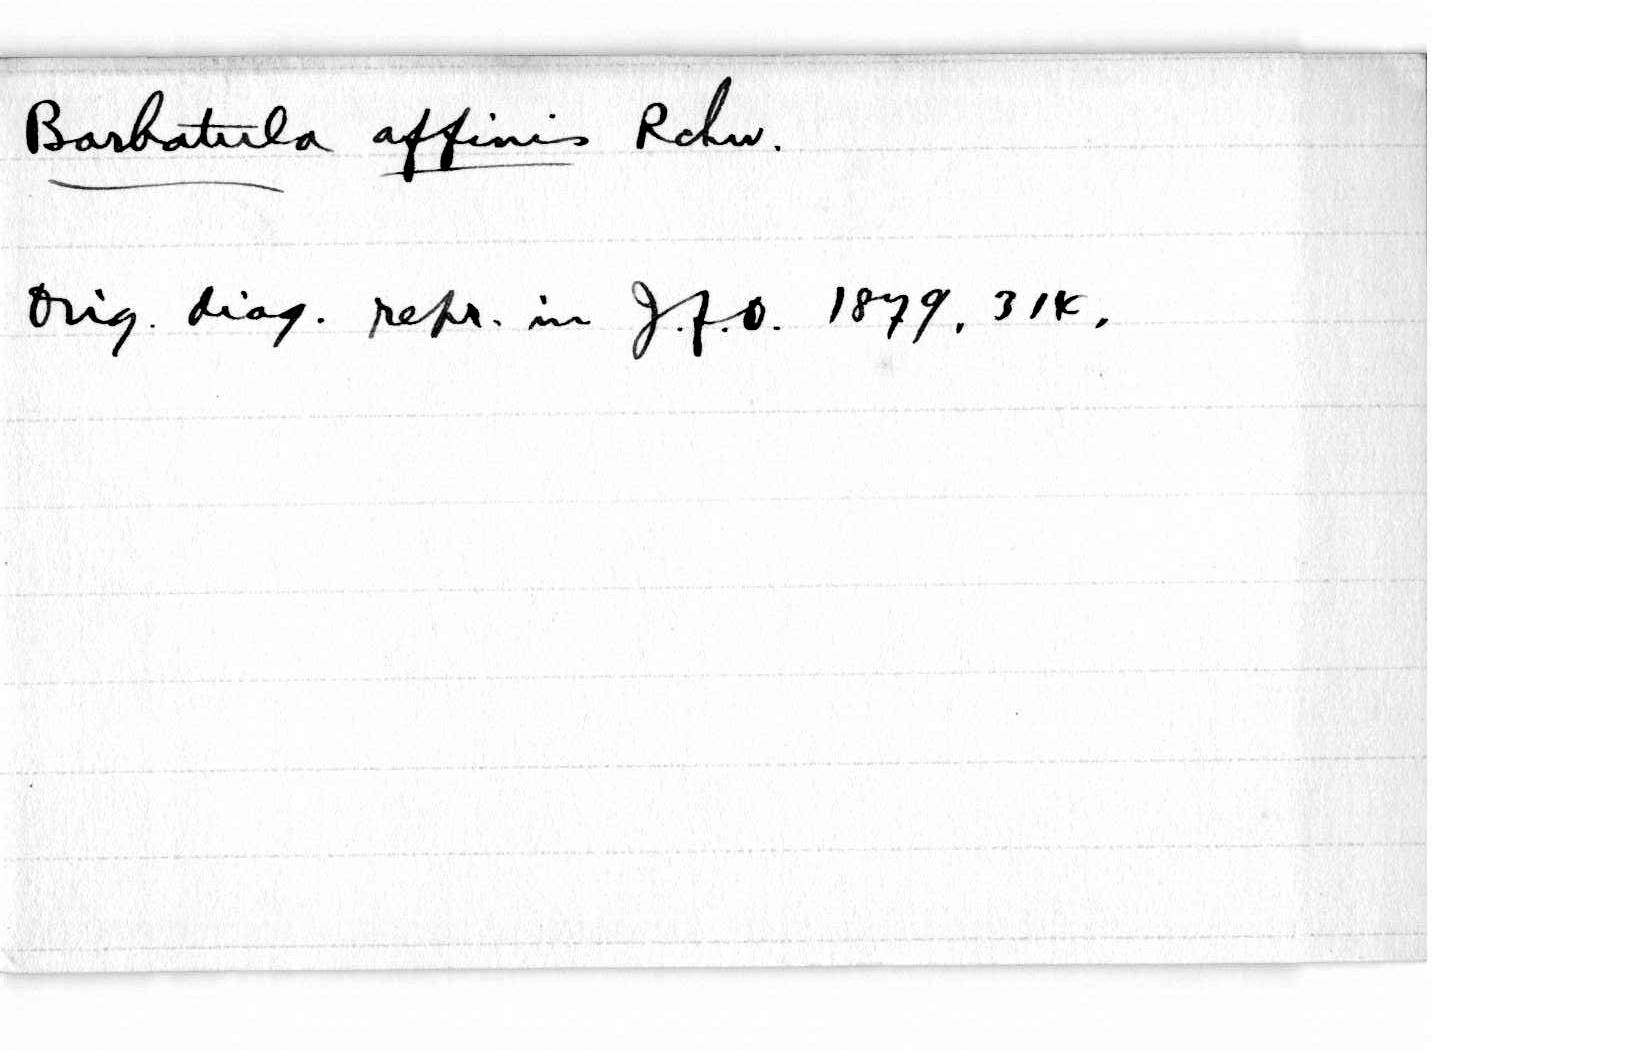 Barbatula affinis Rchw.
Orig. diag. repr. in J.f.O. 1879, 314.